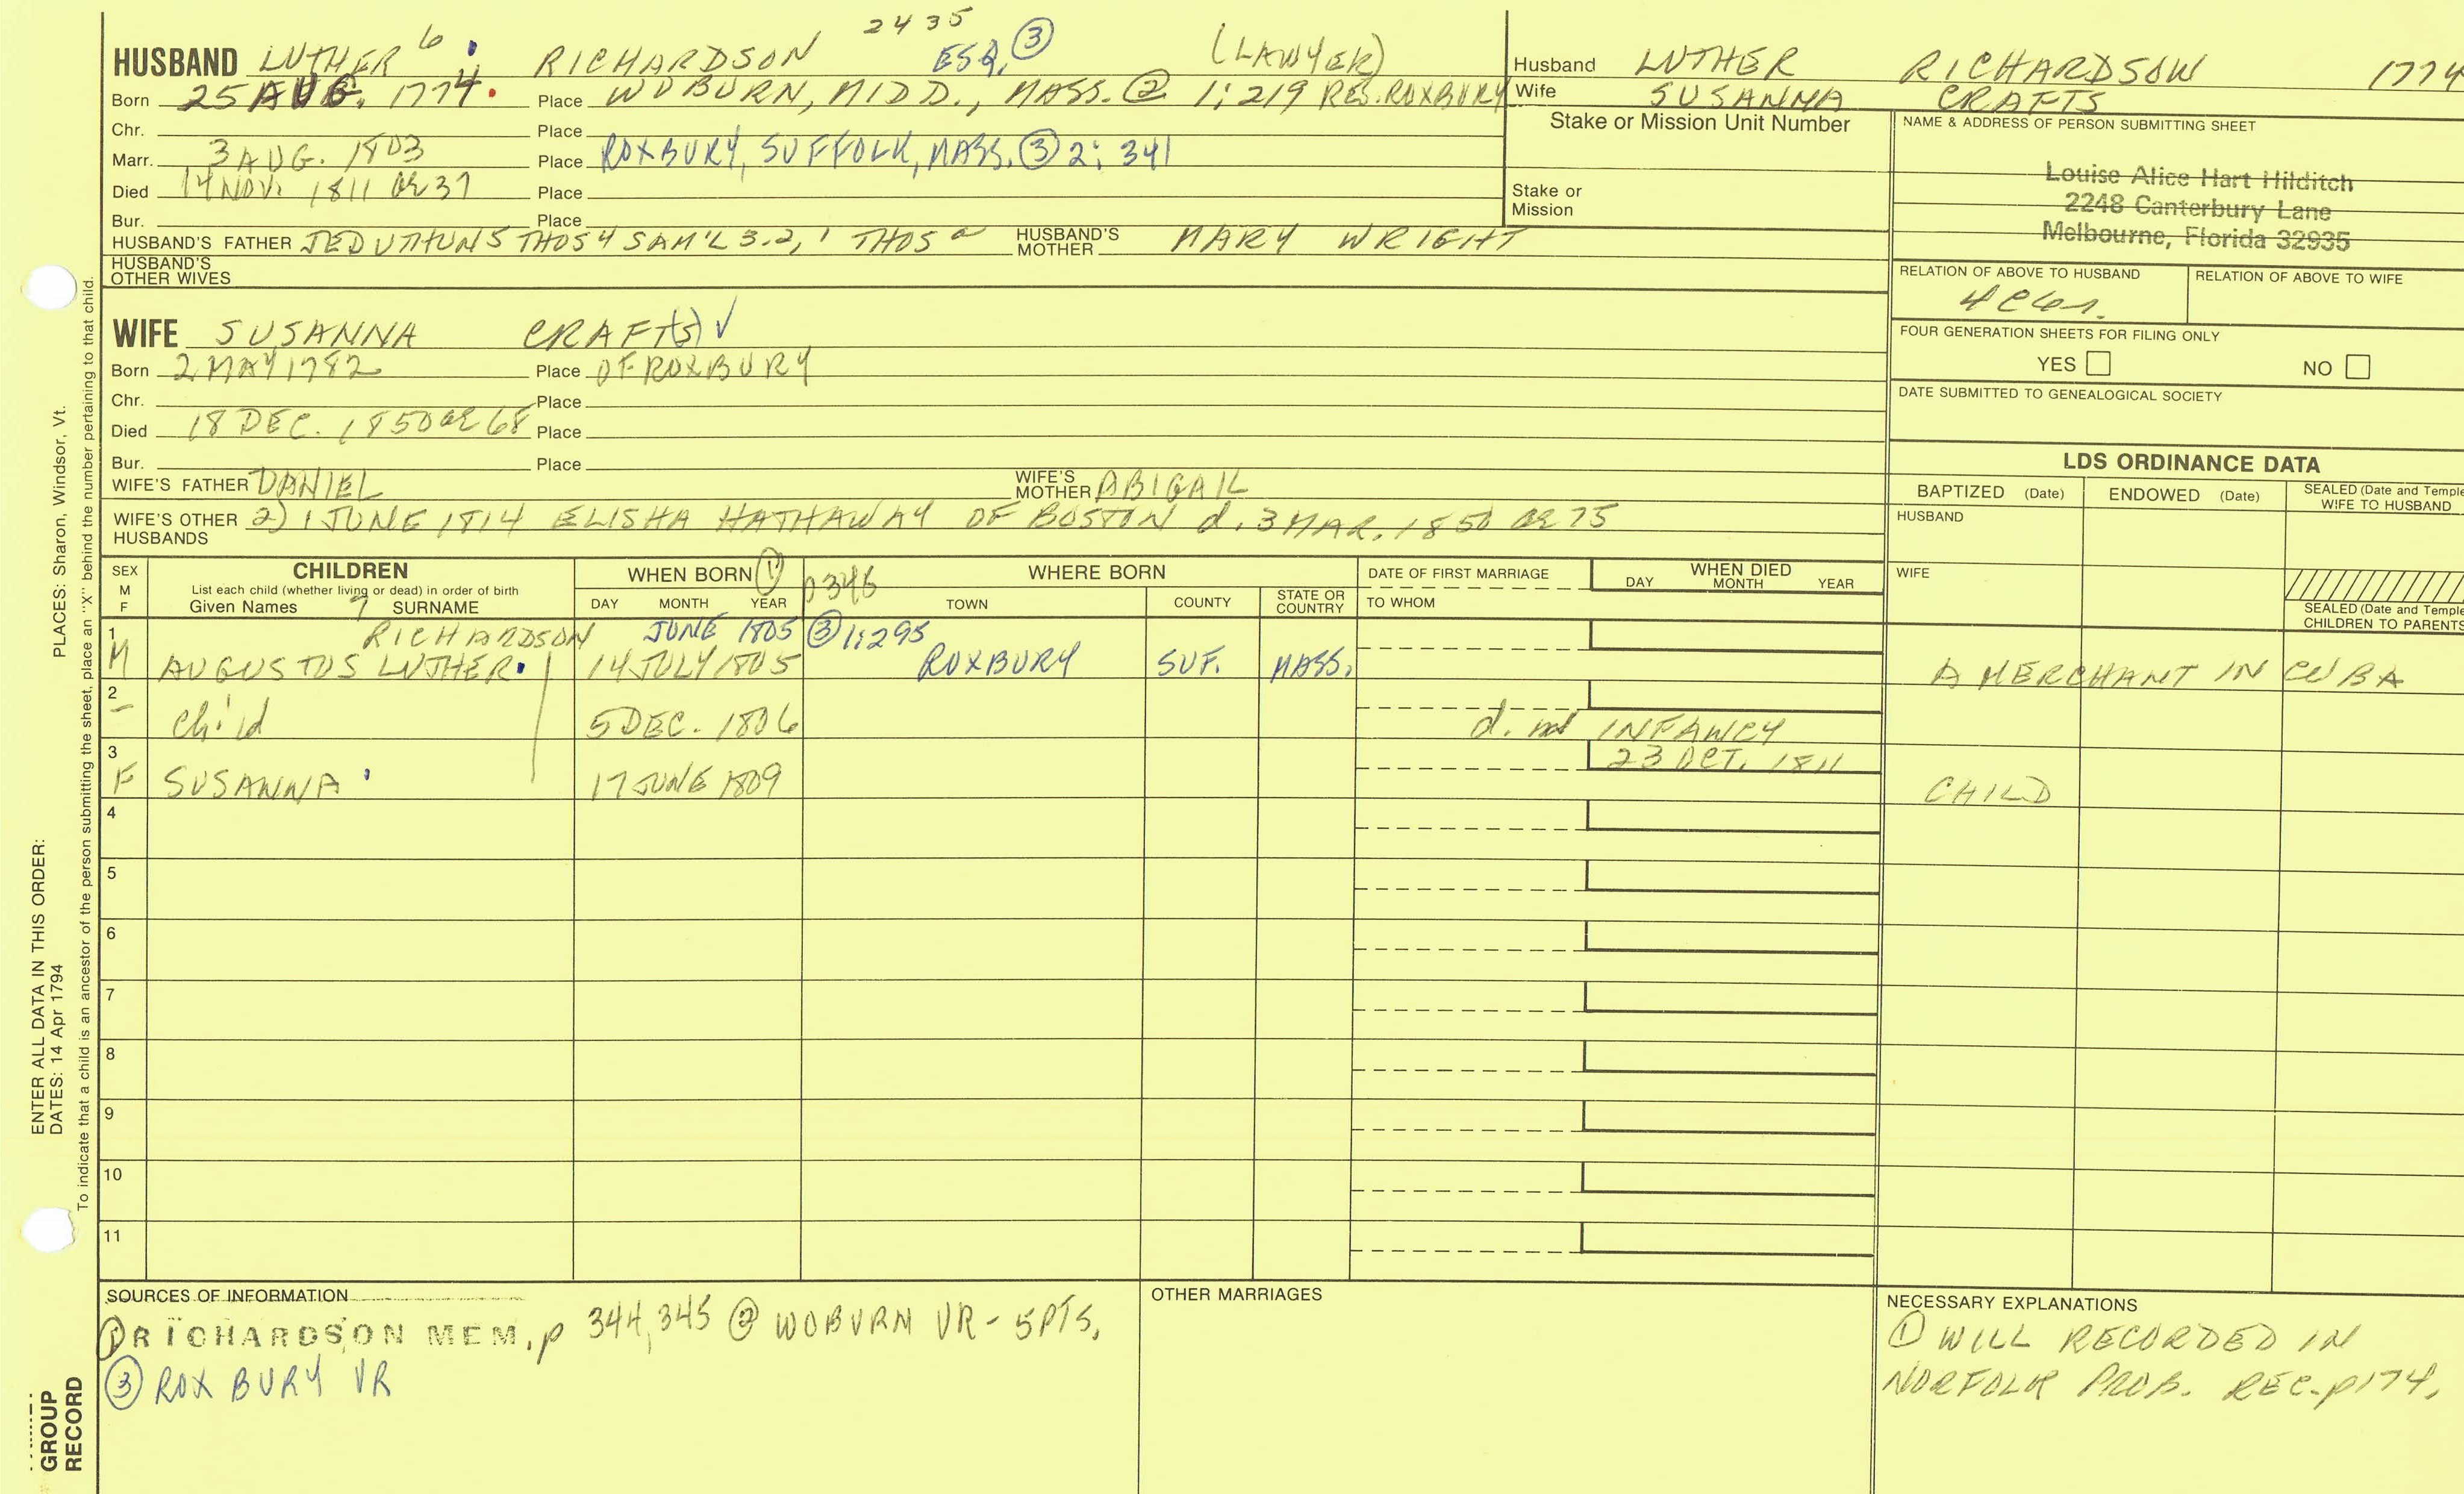 2435
HUSBAND LUTHER 6 RICHARDSON ESQ. ③ (LAWYER)
Born 25 AUG. 1774. Place WOBURN, MIDD., MASS. ② 1:219 RES. ROXBURY
Chr. Place
Marr. 3 AUG. 1803 Place ROXBURY, SUFFOLK, MASS. ③ 2:341
Died 14 NOV. 1811 AE 37 Place
Bur. Place
HUSBAND'S FATHER JEDUTHUN 5 THOS 4 SAM'L 3-2, 1 THOS a HUSBAND'S MOTHER MARY WRIGHT
HUSBAND'S OTHER WIVES
WIFE SUSANNA CRAFT(S) ✓
Born 2 MAY 1782 Place OF ROXBURY
Chr. Place
Died 18 DEC. 1850 AE 68 Place
Bur. Place
WIFE'S FATHER DANIEL WIFE'S MOTHER ABIGAIL
WIFE'S OTHER HUSBANDS 2) 1 JUNE 1814 ELISHA HATHAWAY OF BOSTON d. 3 MAR. 1850 AE 75
Husband LUTHER RICHARDSON 1774
Wife SUSANNA CRAFTS
Stake or Mission Unit Number
Stake or
Mission
NAME & ADDRESS OF PERSON SUBMITTING SHEET
Louise Alice Hart Hilditch
2248 Canterbury Lane
Melbourne, Florida 32935
RELATION OF ABOVE TO HUSBAND RELATION OF ABOVE TO WIFE
FOUR GENERATION SHEETS FOR FILING ONLY
YES NO
DATE SUBMITTED TO GENEALOGICAL SOCIETY
LDS ORDINANCE DATA
BAPTIZED (Date) ENDOWED (Date) SEALED (Date and Temple
WIFE TO HUSBAND
HUSBAND
WIFE
SEALED (Date and Temple
CHILDREN TO PARENTS
SEX
M
F
CHILDREN
List each child (whether living or dead) in order of birth
Given Names 7 SURNAME
WHEN BORN ①
DAY MONTH YEAR
p346 WHERE BORN
TOWN COUNTY STATE OR COUNTRY
DATE OF FIRST MARRIAGE
TO WHOM
WHEN DIED
DAY MONTH YEAR
1 RICHARDSON JUNE 1805 ③ 1:295
M AUGUSTUS LUTHER 14 JULY 1805 ROXBURY SUF. MASS. A MERCHANT IN CUBA
2
– child 5 DEC. 1806 d. INFANCY
3 23 OCT. 1811
F SUSANNA 17 JUNE 1809 CHILD
4
5
6
7
8
9
10
11
SOURCES OF INFORMATION
① RICHARDSON MEM, p 344, 345 ② WOBURN VR - 5 PTS.
③ ROXBURY VR
OTHER MARRIAGES
NECESSARY EXPLANATIONS
① WILL RECORDED IN
NORFOLK PROB. REC. p174.
PLACES: Sharon, Windsor, Vt.
ENTER ALL DATA IN THIS ORDER:
DATES: 14 Apr 1794
To indicate that a child is an ancestor of the person submitting the sheet, place an "X" behind the number pertaining to that child.
GROUP
RECORD